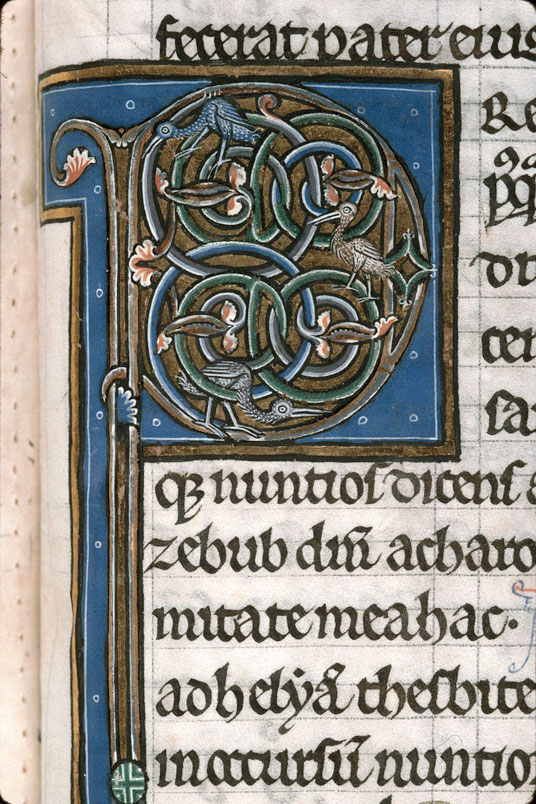 fecerat pater eius
P
Re
p̄q̄
di
cer
sa
q; nuntios dicens a
zebub dm̄ acharo
mitate mea hac.
ad helyā thesbite
in occursū nuntio